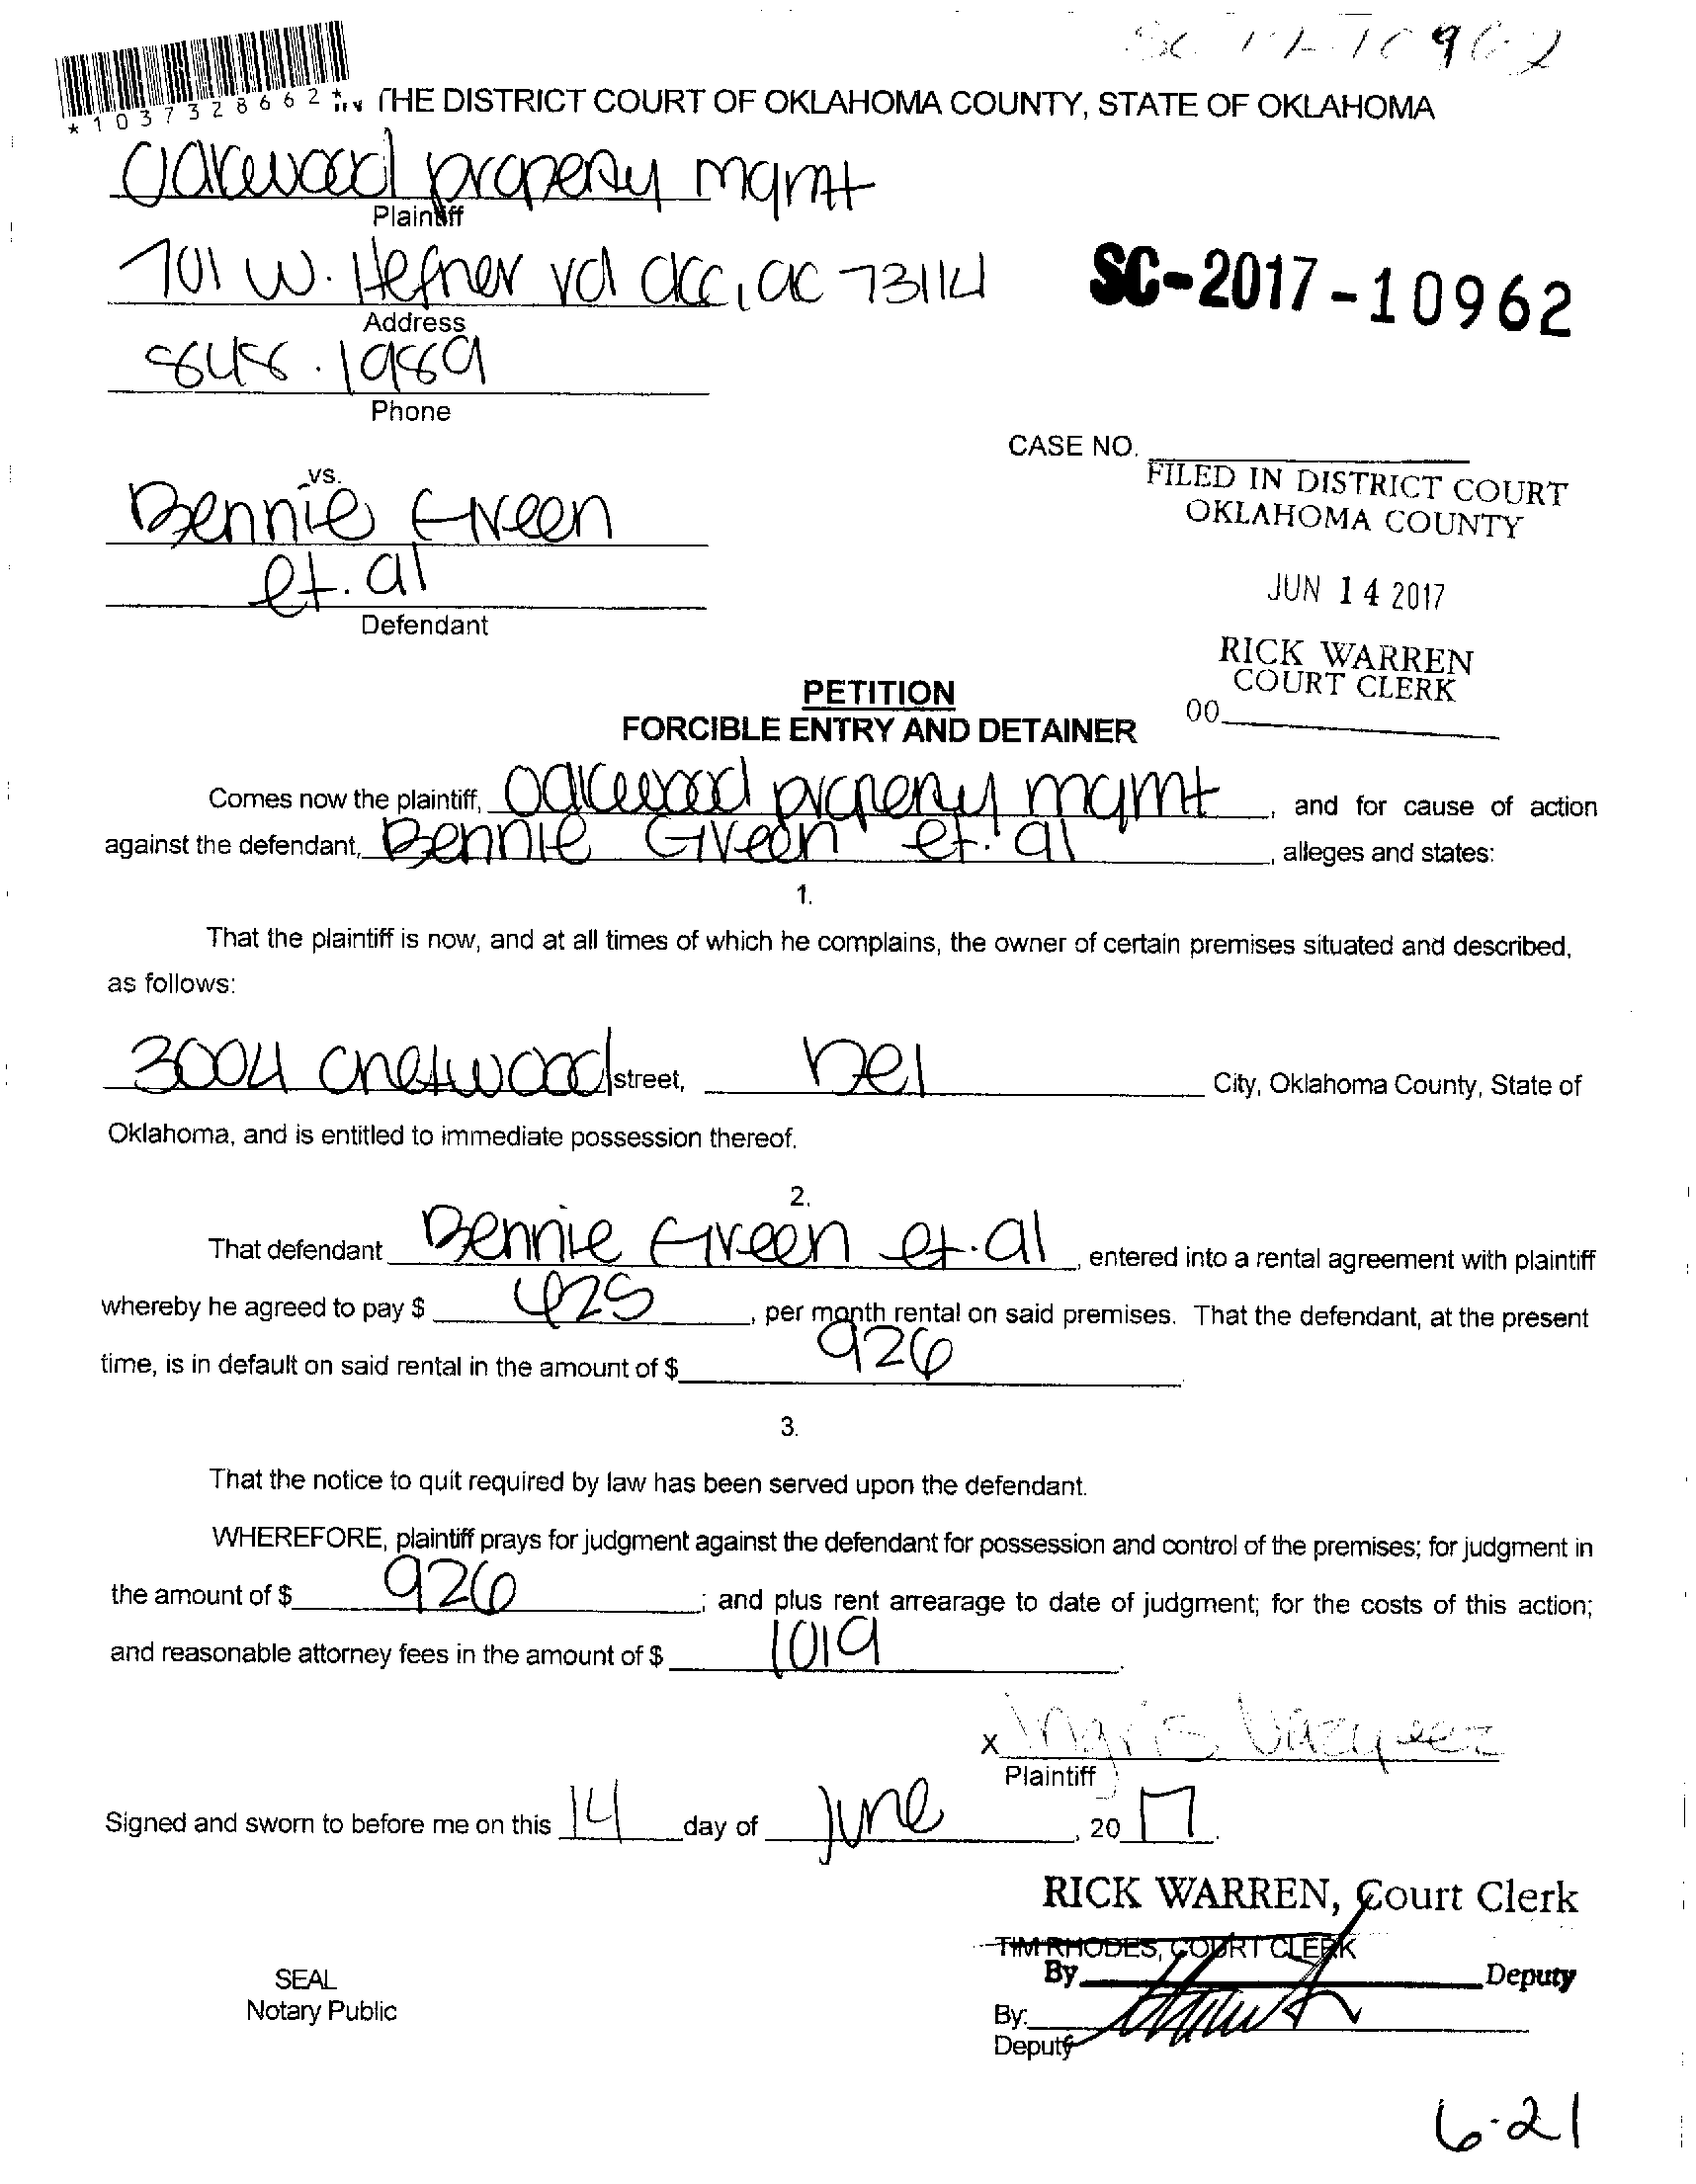 SC-17-10962
*1037328662*
IN THE DISTRICT COURT OF OKLAHOMA COUNTY, STATE OF OKLAHOMA
Oakwood property mgmt
Plaintiff
701 W. Hefner rd OKC, OK 73114
SC-2017-10962
Address
848.1989
Phone
CASE NO.
vs.
FILED IN DISTRICT COURT
OKLAHOMA COUNTY
Bennie Green
et. al
JUN 14 2017
Defendant
RICK WARREN
COURT CLERK
00
PETITION
FORCIBLE ENTRY AND DETAINER
Comes now the plaintiff, Oakwood property mgmt, and for cause of action
against the defendant, Bennie Green et. al, alleges and states:
1.
That the plaintiff is now, and at all times of which he complains, the owner of certain premises situated and described,
as follows:
3004 Chetwood street, Del City, Oklahoma County, State of
Oklahoma, and is entitled to immediate possession thereof.
2.
That defendant Bennie Green et. al, entered into a rental agreement with plaintiff
whereby he agreed to pay $ 425, per month rental on said premises. That the defendant, at the present
time, is in default on said rental in the amount of $ 926.
3.
That the notice to quit required by law has been served upon the defendant.
WHEREFORE, plaintiff prays for judgment against the defendant for possession and control of the premises; for judgment in
the amount of $ 926; and plus rent arrearage to date of judgment; for the costs of this action;
and reasonable attorney fees in the amount of $ 1019.
x Ingris Vazquez
Plaintiff
Signed and sworn to before me on this 14 day of June, 20 17.
RICK WARREN, Court Clerk
TIM RHODES, COURT CLERK
By Deputy
SEAL
Notary Public
By:
Deputy
6-21